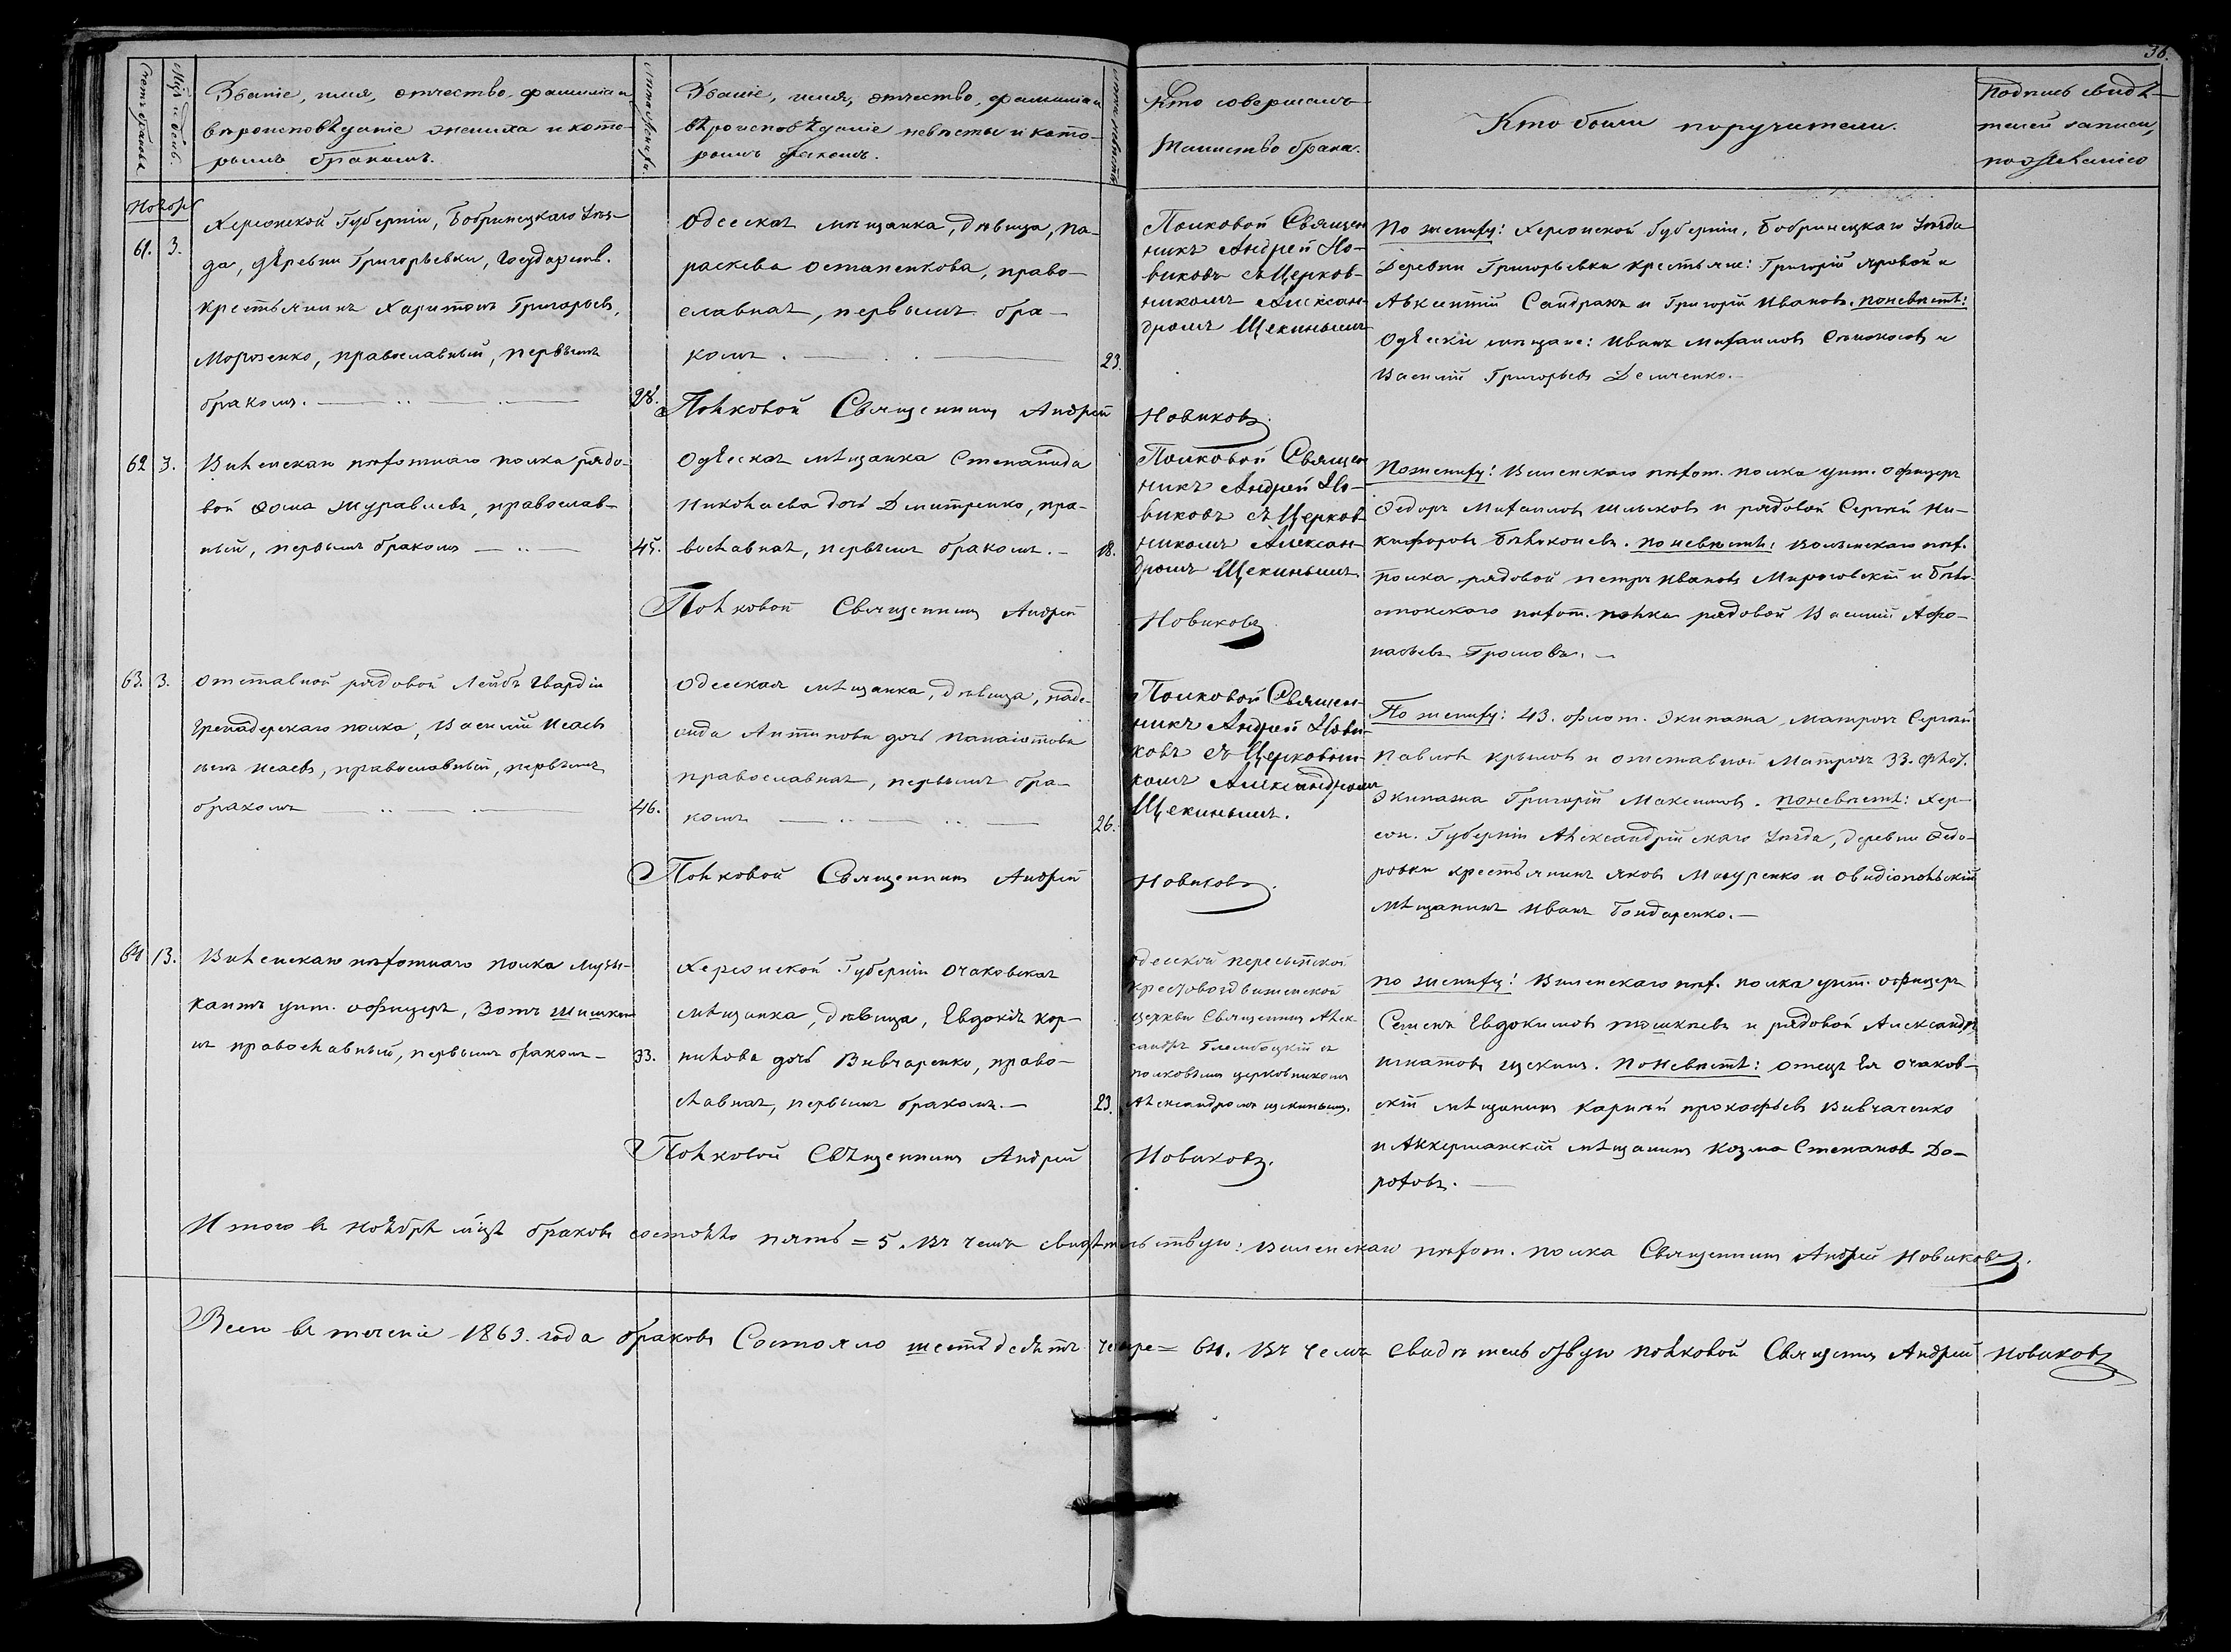 36.
Счетъ браковъ
Мѣс. и день.
Званіе, имя, отчество, фамилія и
вѣроисповѣданіе жениха и кото-
рымъ бракомъ.
Лѣта жениха
Званіе, имя, отчество, фамилія и
вѣроисповѣданіе невѣсты и кото-
рымъ бракомъ.
Лѣта невѣсты
Кто совершалъ
Таинство брака.
Кто были поручители.
Подпись свидѣ-
телей записи,
по желанію
Ноябрь
61. 3.
Херсонской Губерніи, Бобринецкаго Уѣз-
да, деревни Григорьевки, Государств.
крестьянинъ Харитонъ Григорьевъ,
Морозенко, православный, первымъ
бракомъ.
28.
Одесская мѣщанка, дѣвица, Па-
раскева Остапенкова, право-
славная, первымъ бра-
комъ.
23.
Полковой Священникъ Андрей Новиковъ.
Полковой Священ
никъ Андрей Но-
виковъ съ Церков-
никомъ Алексан-
дромъ Щекинымъ
По женихѣ: Херсонской Губерніи, Бобринецкаго Уѣзда
Деревни Григорьевки крестьяне: Григорій Яровой и
Авксентій Сандракъ и Григорій Ивановъ. По невѣстѣ:
Одескіе мѣщане: Иванъ Михаиловъ и
Василій Григорьевъ Демченко.
62 3.
Виленскаго пѣхотнаго полка рядо-
вой Ѳома Журавлевъ, православ-
ный, первымъ бракомъ
45.
Одеская мѣщанка Степанида
Николаева дочь Дмитренко, пра-
вославная, первымъ бракомъ.
18.
Полковой Священникъ Андрей Новиковъ
Полковой Священ
никъ Андрей Но-
виковъ съ Церков
никомъ Алексан-
дромъ Щекинымъ
По женихѣ: Виленскаго пѣхот. полка унт. офицеръ
Ѳедоръ Михаиловъ Шлыковъ и рядовой Сергѣй Ни-
кифоровъ. По невѣстѣ: Волынскаго пѣх.
полка рядовой Петръ Ивановъ Мироговскій и Бѣло-
стокскаго пѣхот. полка рядовой Василій Афо-
насьевъ Громовъ.
63. 3.
Отставной рядовой Лейбъ Гвардіи
Гренадерскаго полка, Василій Исаевъ
сынъ Исаевъ, православный, первымъ
бракомъ
46.
Одесская мѣщанка, дѣвица,
Антипова дочь Панаіотова
православная, первымъ бра-
комъ
26.
Полковой Священникъ Андрей Новиковъ.
Полковой Священ-
никъ Андрей Нови-
ковъ съ Церковни-
комъ Александромъ
Щекинымъ.
По женихѣ: 43. флот. Экипажа Матрозъ Сергѣй
Павловъ Крыловъ и отставной Матрозъ 33. флот.
Экипажа Григорій Максимовъ. По невѣстѣ: Хер-
сон. Губерніи Александрійскаго Уѣзда, деревни Ѳедо-
ровки крестьянинъ Яковъ Мазуренко и Овидіопольскій
мѣщанинъ Иванъ Бондаренко.
64 13.
Виленскаго пѣхотнаго полка музы-
кантъ унт. офицеръ, Зотъ
православный, первымъ бракомъ
33.
Херсонской Губерніи Очаковская
мѣщанка, дѣвица, Евдокія Кор-
нилова дочь Вивчаренко, право-
славная, первымъ бракомъ.
23.
Полковой Священникъ Андрей Новиковъ.
Одесской Пересыпской
Крестовоздвиженской
церкви Священникъ Алек
сандръ съ
полковымъ церковникомъ
Александромъ Щекинымъ.
По женихѣ: Виленскаго пѣх. полка унт. офицеръ
Семенъ Евдокимовъ и рядовой Александръ
Игнатовъ Щекинъ. По невѣстѣ: отецъ Ея Очаков-
скій мѣщанинъ Карнѣй Прокофьевъ Вивчаренко
и Аккерманскій мѣщанинъ Козма Степановъ До-
роховъ.
Итого въ Ноябрѣ м-цѣ браковъ состояло пять = 5. Въ чемъ свидѣтельствую: Виленскаго пѣхот. полка Священникъ Андрей Новиковъ.
Всего въ теченіе 1863. года браковъ Состояло шестьдесятъ четыре = 64. Въ чемъ свидѣтельствую полковой Священникъ Андрей Новиковъ